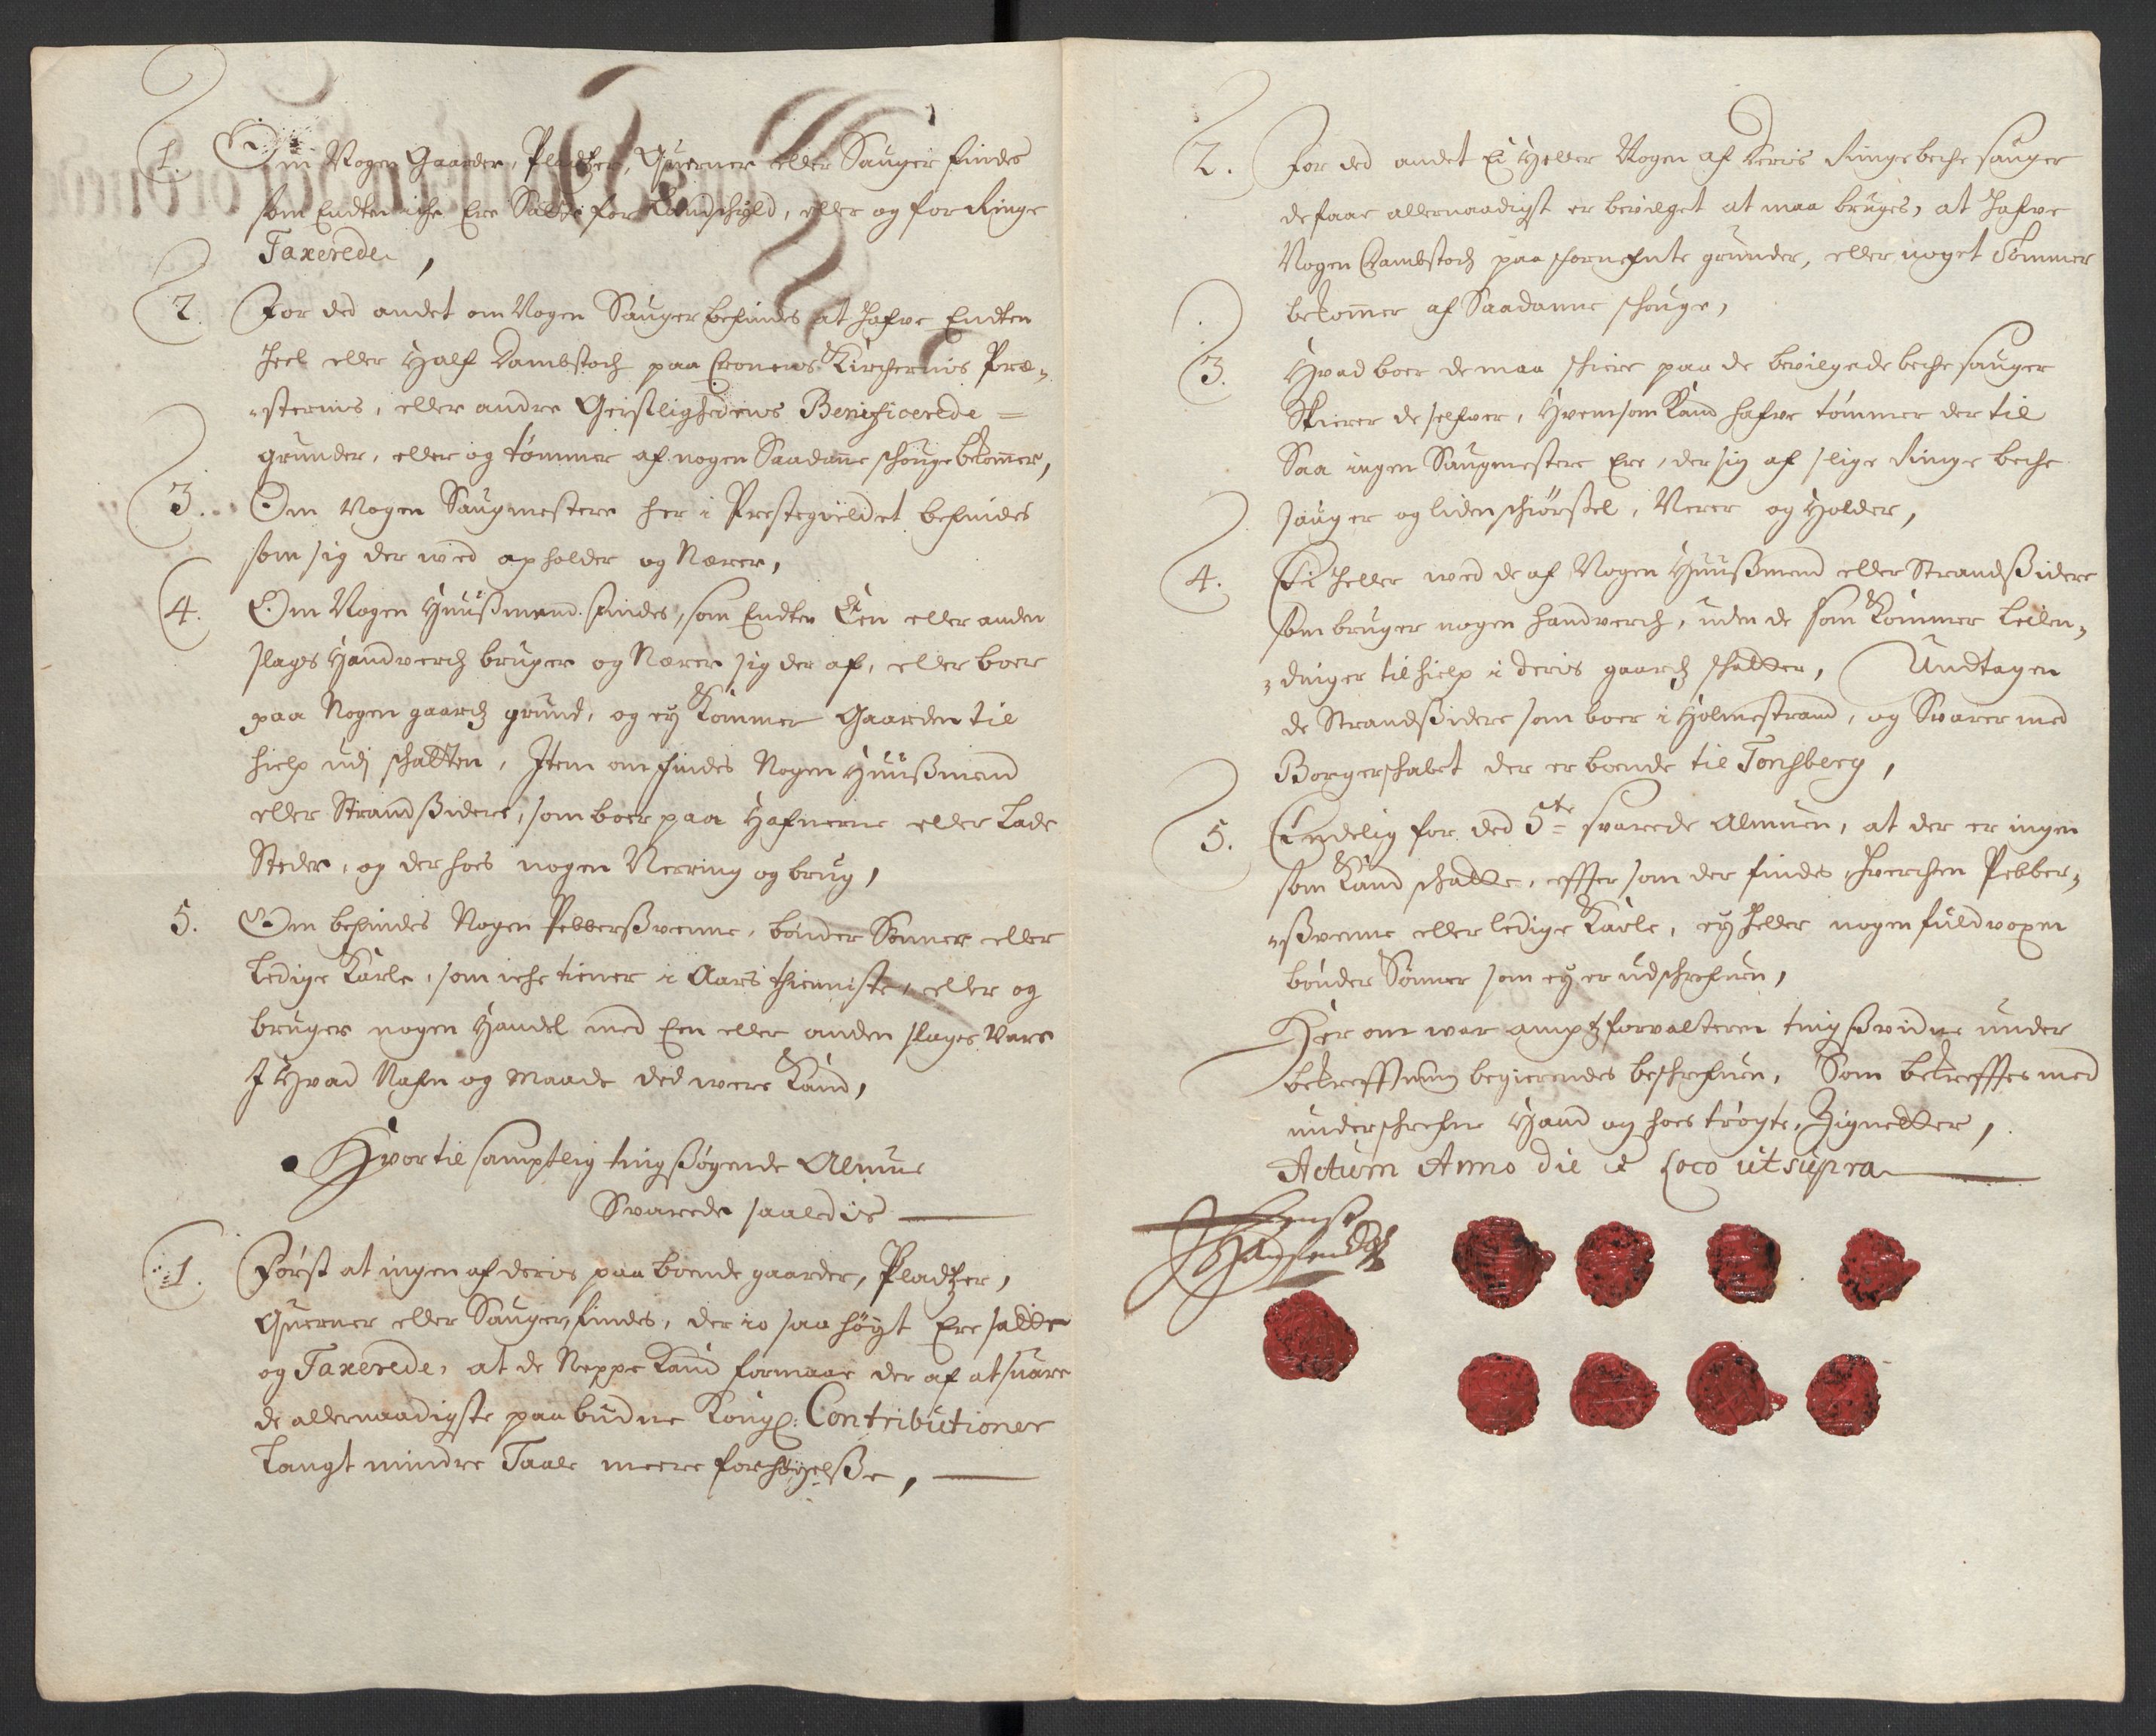 1. Om Nogen Gaarder, Pladtzer, Quærner eller Sauger findes
som Endten iche Ere Satte for Landschyld, eller og for Ringe
Taxerede,
2. For ded andet om Nogen Sauger befindes at hafve Endten
heel eller Half Dambstoch paa Cronens Kirchernis Præ-
-sternis, eller andre Geistlighedens Benificerede =
grunder, eller og tømmer af nogen Saadanne schouge bekommer,
3. Om Nogen Saugmestere her i Prestegieldet befindes
som sig der wed opholder og Nærer,
4. Om Nogen Huußmend findes, som Endten Een eller anden
slags Handverch bruger og Nærer sig der af, eller boer
paa Nogen gaardz grund, og ey Kommer Gaarden til
hielp udj schatten, Item om findes Nogen Huußmend
eller Strandsßidere, som boer paa Hafnerne eller Lade
Steder, og der hoes nogen Nerring og brug,
5. Om befindes Nogen Pebberßvenne, bønder Sønner eller
Ledige Karle, som iche tiener i Aars thienniste, eller og
bruger nogen Handel med Een eller anden slags Vare
J Hvad Nafn og Maade ded were Kand,
Hvor til samptlig tingßøgende Almue
Svarede saaledis
1. Først at ingen af deris paa boende gaarder, Pladtzer,
Querner eller Sauger findes, der io saa høyt Ere satte
og Taxerede, at de Neppe Kand formaae der af at suare
de allernaadigste paabudne Kongl: Contributioner
Langt mindre Taale meere forhøyelße,
2. For ded andet Ei Heller Nogen af deris Ringe beche sauger
de faae allernaadigst er bevilget at maa bruges, at hafve
Nogen Dambstoch paa fornefnte grunder, eller noget Tømmer
bekommer af Saadanne schouge,
3. Hvad boer de maa schiere paa de bevilgede beche sauger
Skierer de selfver, Hvem som Kand hafve tømmer der til
Saa ingen Saugmestere Ere, der sig af slige Ringe beche
sauger og liden schiørßel, Nerer og Holder,
4. Ei heller wed de af Nogen Huußmend eller Strandsßidere
som bruger nogen handverch, uden de som Kommer Leilen-
-dinger til hielp i deris gaardz schatter, Undtagen
de Strandsßidere som boer i Holmestrand, og Svarer med
Borgerschabet der er boende til Tonsberg,
5. Endelig for ded 5te svarede Almuen, at der er ingen
som Kand schatte, efter som der findes hverchen Pebber-
-ßvenne eller ledige Karle, ey heller nogen fuldvoxen
bønder Sønner som ey er udschrefuen,
Her om war amptzforvalteren tingßvidne under
bekrefftning begierendes beschrefuen, Som bekrefftes med
underschrefne Haand og hoes trøgte Zignetter,
Actum Anno die et Loco ut supra